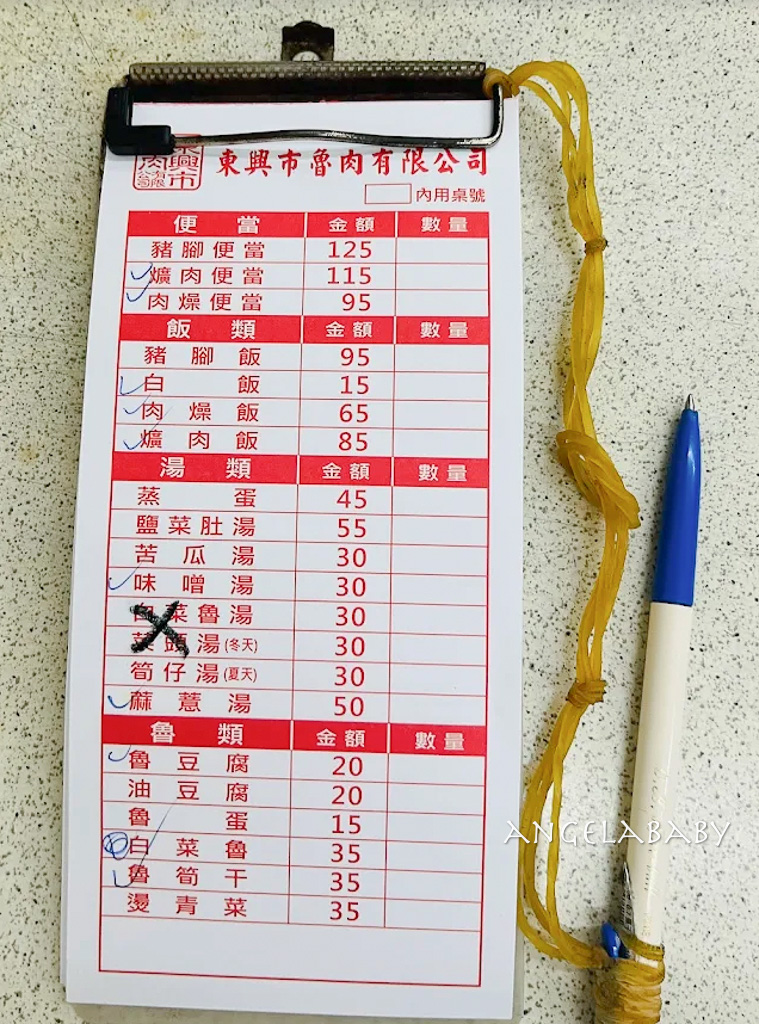 東興市魯肉有限公司
內用桌號
便當 金額 數量
豬腳便當 125
爌肉便當 115
肉燥便當 95
飯類 金額 數量
豬腳飯 95
白飯 15
肉燥飯 65
爌肉飯 85
湯類 金額 數量
蒸蛋 45
鹽菜肚湯 55
苦瓜湯 30
味噌湯 30
白菜魯湯 30
菜頭湯(冬天) 30
筍仔湯(夏天) 30
蔴薏湯 50
魯類 金額 數量
魯豆腐 20
油豆腐 20
魯蛋 15
白菜魯 35
魯筍干 35
燙青菜 35
ANGELABABY